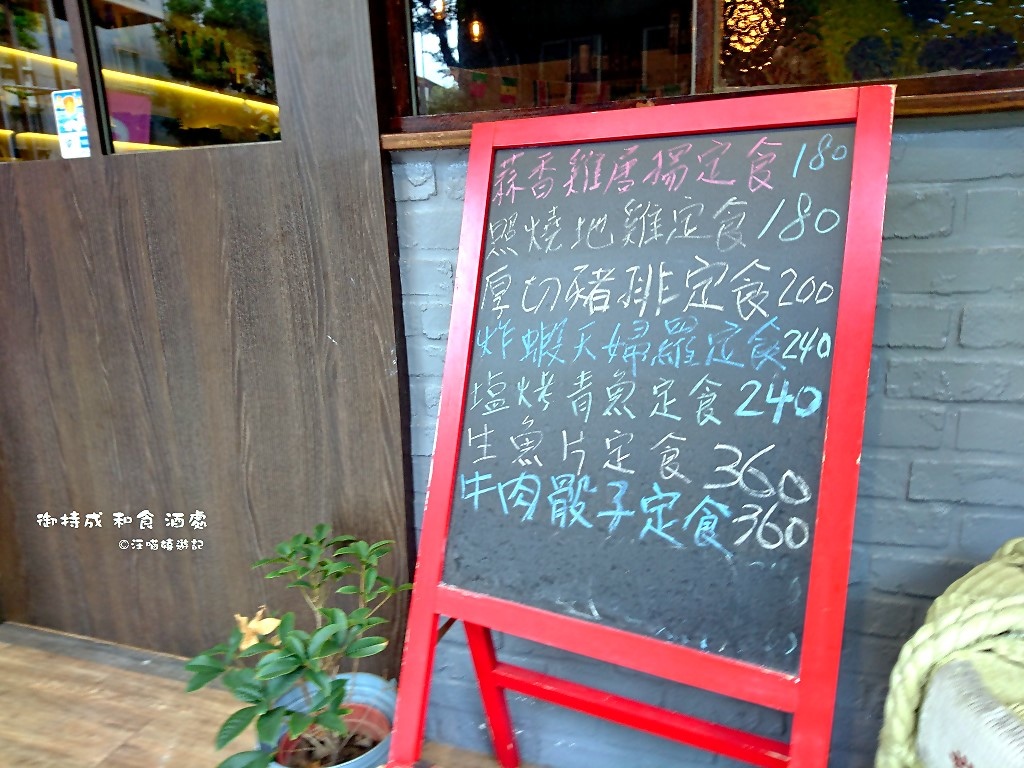 蒜香雞唐揚定食 180
照燒地雞定食 180
厚切豬排定食 200
炸蝦天婦羅定食 240
塩烤青魚定食 240
生魚片定食 360
牛肉骰子定食 360
御持成 和食 酒處
©汪喵嬉遊記